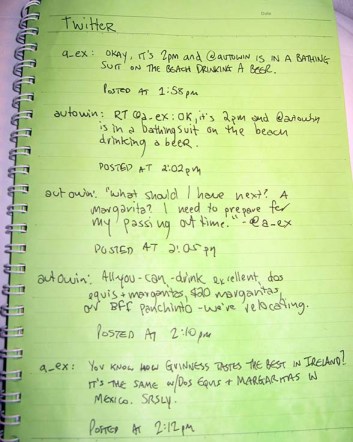 Twitter
a_ex: OKAY, IT'S 2pm AND @AUTOWIN IS IN A BATHING
SUIT ON THE BEACH DRINKING A BEER.
POSTED AT 1:58pm
autowin: RT @a_ex: OK, it's 2pm and @autowin
is in a bathingsuit on the beach
drinking a beer.
POSTED AT 2:02pm
autowin: "What should I have next? A
margarita? I need to prepare for
my passing out time." -@a_ex
POSTED AT 2:05pm
autowin: All-you-can-drink excellent, dos
equis + margaritas, $20 margaritas,
our BFF panchinto - we're relocating.
POSTED AT 2:10pm
a_ex: YOU KNOW HOW GUINNESS TASTES THE BEST IN IRELAND?
IT'S THE SAME W/DOS EQUIS + MARGARITAS IN
MEXICO. SRSLY.
POSTED AT 2:12pm